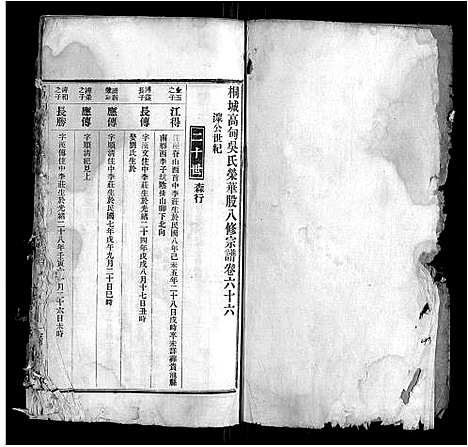 桐城高甸吳氏榮華股八修宗譜卷六十六
濼公世紀
二十世 森行
金玉之子
江得
江得脊山西首中李莊生於民國八年己未五年二十八日戌時卒未詳葬貴池縣
南鄉西李子坑陰佳山腳下北向
長傳
字茂文住中李莊生於光緒二十四年戊戌八月十七日丑時
娶劉氏生於
應傳
字 傳住中李莊生於民國七年戊午九月二十日巳時
之子
應傳
字順清紀見上
濤和之子
長勝
字茂傳住中李莊生於光緒二十八年壬寅 月二十六日未時